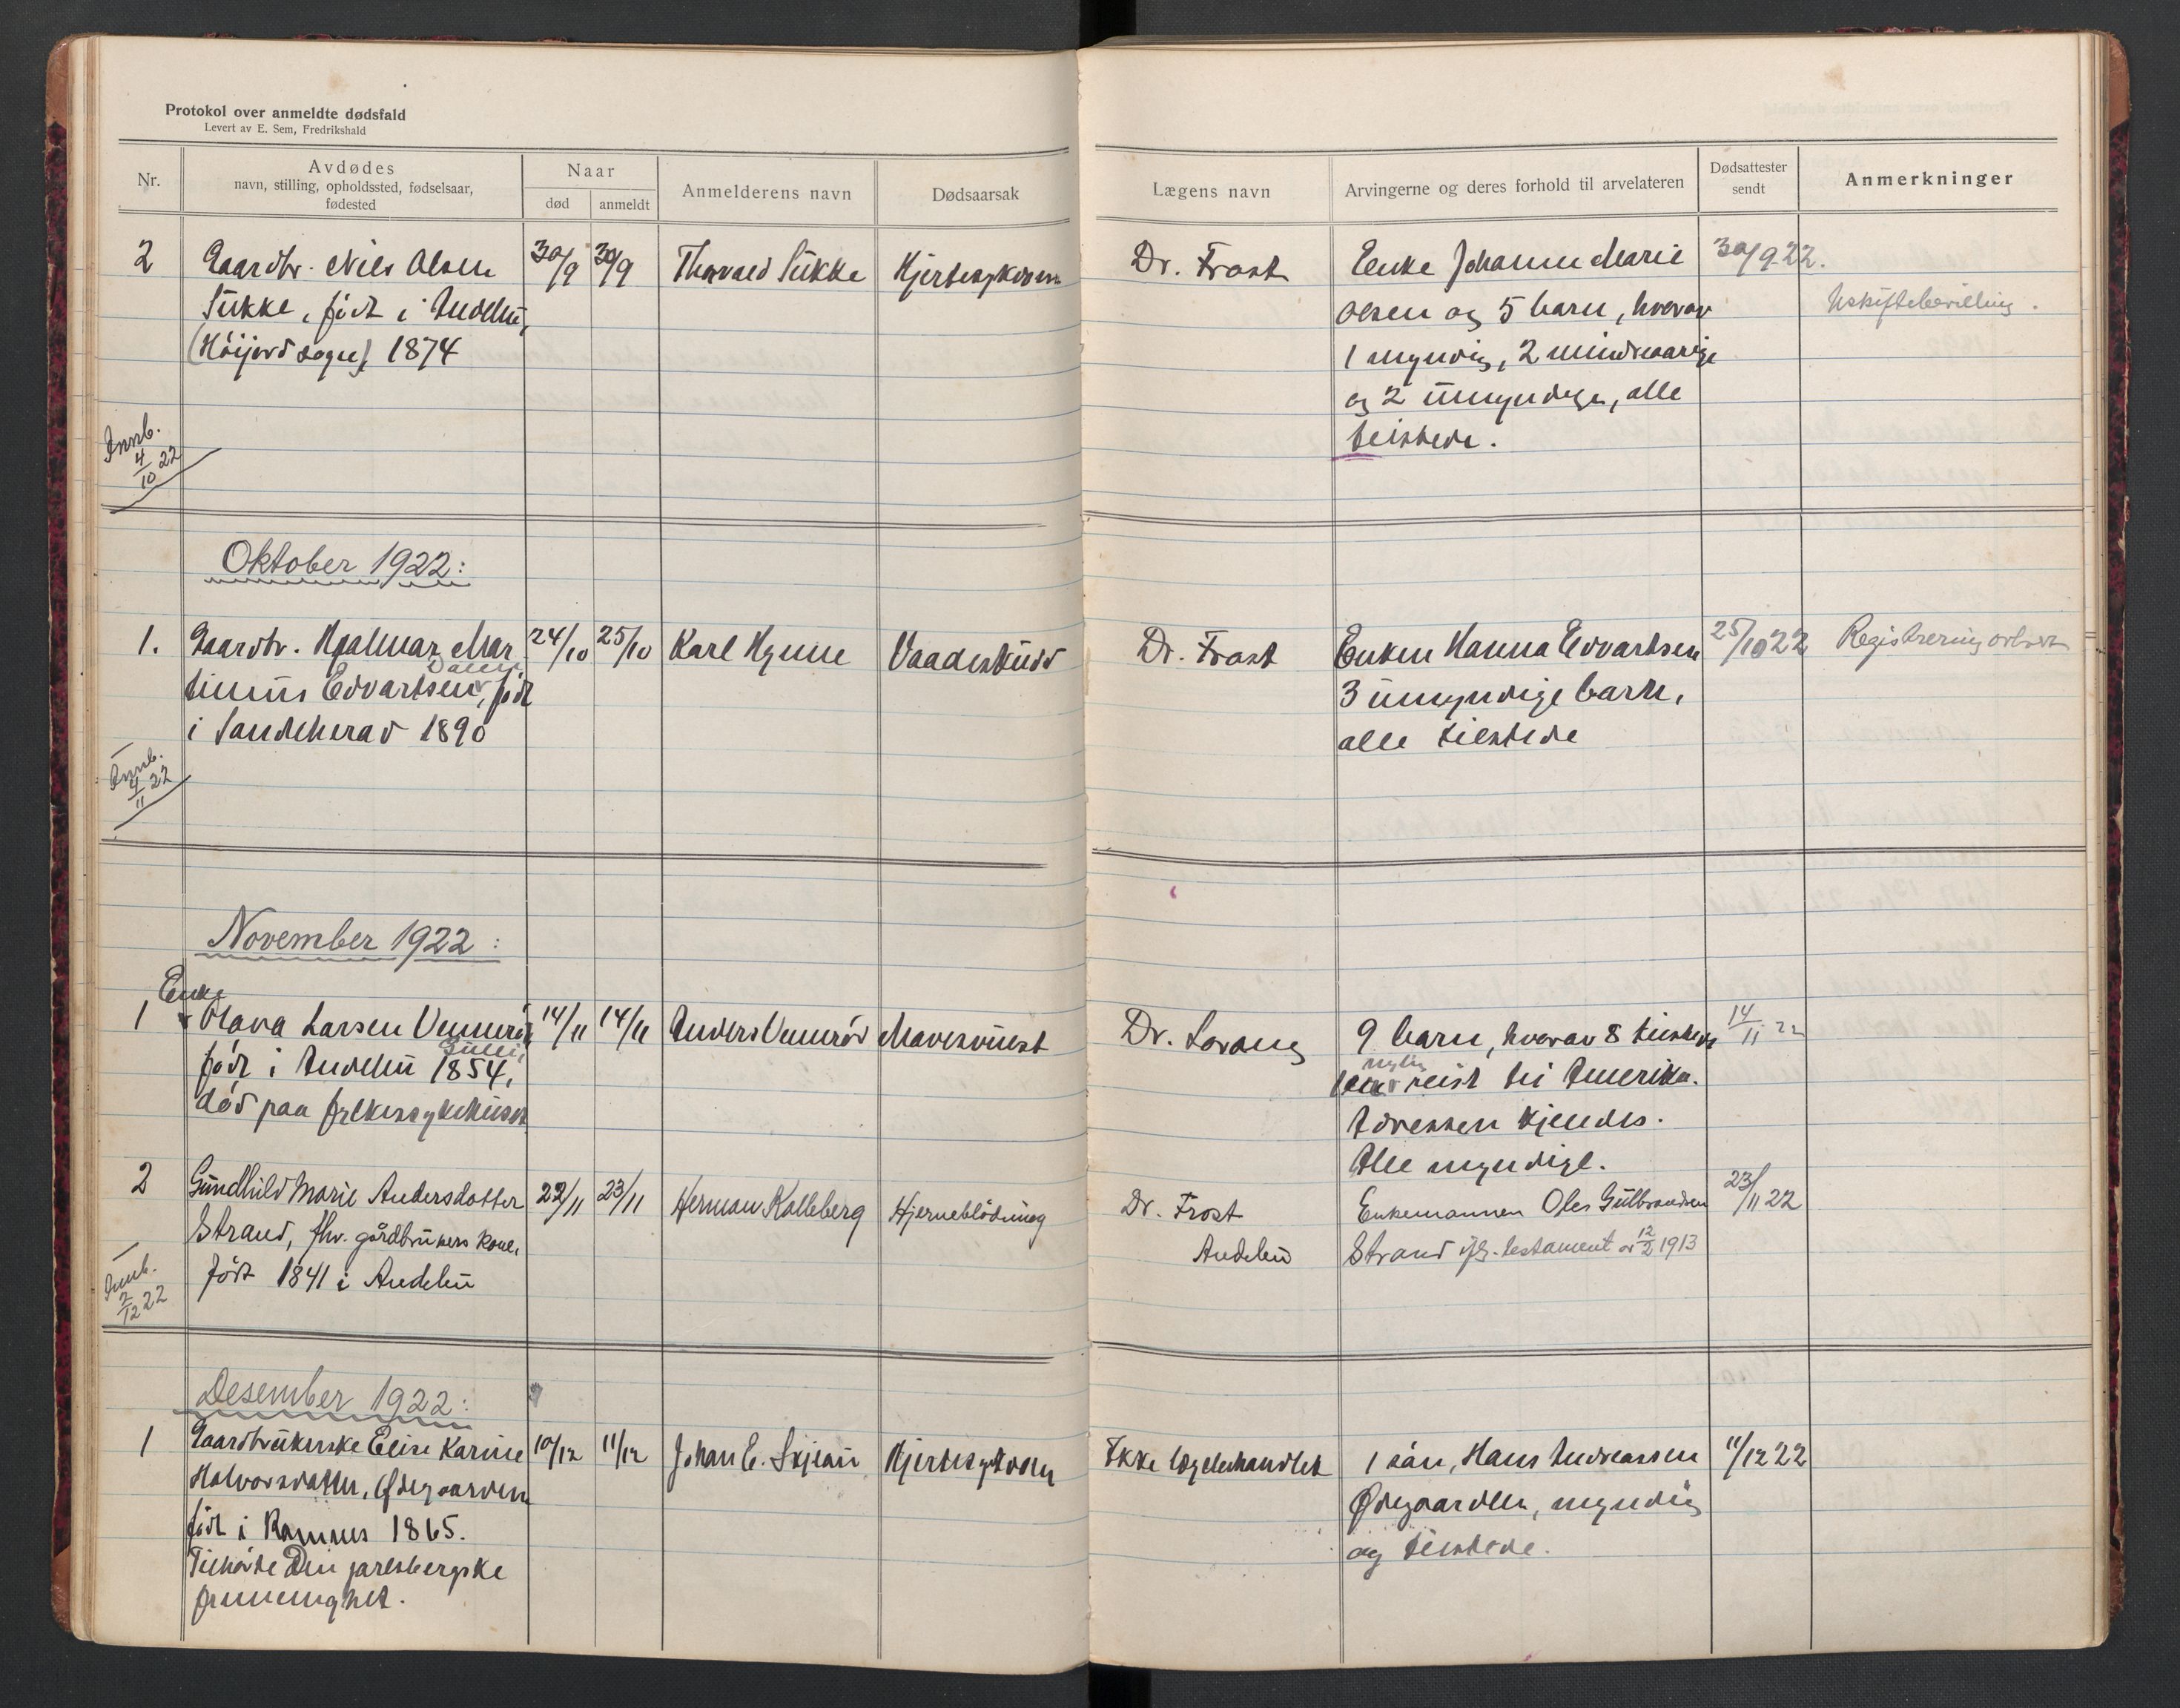 Protokol over anmeldte dødsfald
Levert av E. Sem, Fredrikshald
Nr.
Avdødes
navn, stilling, opholdssted, fødselsaar,
fødested
Naar
død
anmeldt
Anmelderens navn
Dødsaarsak
Lægens navn
Arvingerne og deres forhold til arvelateren
Dødsattester
sendt
Anmerkninger
2
Gaardbr. Nils Olsen
Sukke, født i Andebu,
(Høijord sogn), 1874
30/9
30/9
Thorvald Sukke
Hjertesykdom
Dr. Frost
Enke Johanne Marie
Olsen og 5 barn, hvorav
1 myndig, 2 mindreaarige
og 2 umyndige, alle
tilstede.
30/9 22.
Uskiftebevilling.
Innb.
4/10 22
Oktober 1922:
1.
Gaardbr. Hjalmar Mar
tinius Edvartsen, født
i Sandeherad 1890
24/10
25/10
Karl Hynne
Vaadeskudd
Dr. Frost
Enken Hanna Edvartsen
3 umyndige barn,
alle tilstede
25/10 22
Registrering
Innb.
4/11 22
November 1922:
Enke
1
Olava Larsen Vennerød
født i Andebu 1854,
død paa fylkessykehuset
14/11
14/11
Anders Vennerød
Mavesvulst
Dr. Lorang
9 barn, hvorav 8 tilstede
nylig
reist til Amerika.
Adressen kjendes.
Alle myndige.
14/11 22
2
Gundhild Marie Andersdotter
Strand, fhv. gårdbrukers kone,
født 1841 i Andebu
22/11
23/11
Herman Kalleberg
Hjerneblödning
Dr. Frost
Andebu
Enkemannen Oles Gulbrandsen
Strand ifg. testament av 12/2 1913
23/11 22
Innb.
2/12 22
Desember 1922:
1
Gaardbrukerske Elise Karine
Halvorsdatter, Ødegaarden
født i Ramnes 1865.
Tilhørte Den jarlsbergske
frimenighet.
10/12
11/12
Johan E. Skjelau
Hjertesykdom
Ikke lægebehandlet
1 sønn, Hans Andreassen
Ødegaarden, myndig
og tilstede.
11/12 22